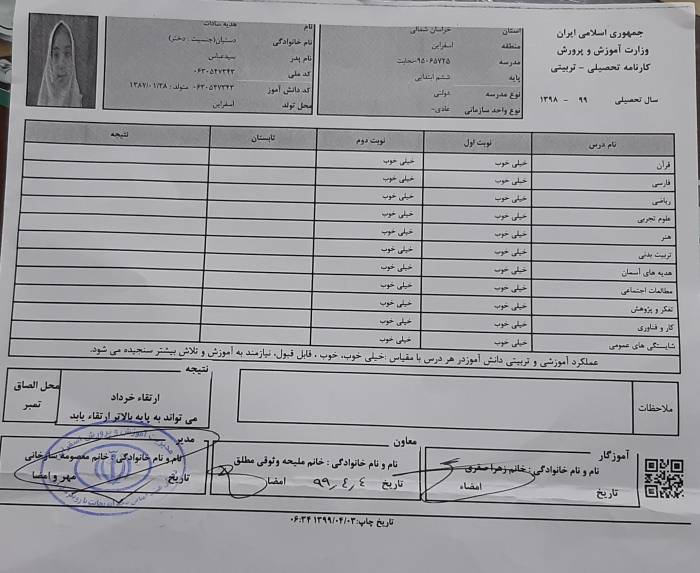 جمهوری اسلامی ایران
وزارت آموزش و پرورش
کارنامه تحصیلی - تربیتی
سال تحصیلی ۹۹ - ۱۳۹۸
استان خراسان شمالی
منطقه اسفراین
مدرسه
پایه ششم ابتدایی
نوع مدرسه دولتی
نوع واحد سازمانی عادی-
نام هدیه سادات
نام خانوادگی (جنسیت : دختر)
نام پدر سیدعباس
کد ملی ۰۶۳۰۵۲۷۳۴۳
کد دانش آموز ۰۶۳۰۵۲۷۳۴۳ متولد : ۱۳۸۷/۰۱/۲۸
محل تولد اسفراین
نام درس نوبت اول نوبت دوم تابستان نتیجه
قرآن خیلی خوب خیلی خوب
فارسی خیلی خوب خیلی خوب
ریاضی خیلی خوب خیلی خوب
علوم تجربی خیلی خوب خیلی خوب
هنر خیلی خوب خیلی خوب
تربیت بدنی خیلی خوب خیلی خوب
هدیه های آسمان خیلی خوب خیلی خوب
مطالعات اجتماعی خیلی خوب خیلی خوب
تفکر و پژوهش خیلی خوب خیلی خوب
کار و فناوری خیلی خوب خیلی خوب
شایستگی های عمومی خیلی خوب خیلی خوب
عملکرد آموزشی و تربیتی دانش آموزدر هر درس با مقیاس :خیلی خوب، خوب ، قابل قبول، نیازمند به آموزش و تلاش بیشتر سنجیده می شود.
ملاحظات
نتیجه
ارتقاء خرداد
می تواند به پایه بالاتر ارتقاء یابد
محل الصاق
تمبر
آموزگار
نام و نام خانوادگی : خانم زهرا صفری
تاریخ امضاء
معاون
نام و نام خانوادگی : خانم ملیحه وثوقی مطلق
تاریخ ۹۹,۴,۴ امضا
مدیر
نام و نام خانوادگی : خانم معصومه
تاریخ مهر و امضاء
تاریخ چاپ:۱۳۹۹/۰۴/۰۳ ۰۶:۳۴